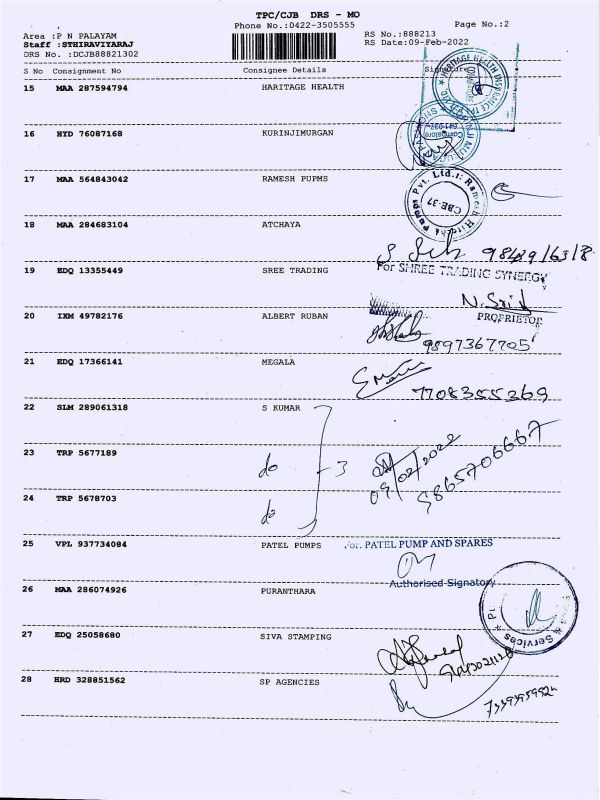 TPC/CJB DRS - MO
Phone No.:0422-3505555
Page No.:2
Area :P N PALAYAM
Staff :STHIRAVIYARAJ
DRS No. :DCJB88821302
RS No.:888213
RS Date:09-Feb-2022
S No Consignment No Consignee Details Signature
15 MAA 287594794 HARITAGE HEALTH
16 HYD 76087168 KURINJIMURGAN
17 MAA 564843042 RAMESH PUPMS
CBE-37
18 MAA 284683104 ATCHAYA
19 EDQ 13355449 SREE TRADING
For SHREE TRADING SYNERGY
20 IXM 49782176 ALBERT RUBAN
PROPRIETOR
9597367705
21 EDQ 17366141 MEGALA
7708355269
22 SLM 289061318 S KUMAR
23 TRP 5677189 do 3
09/02/2022
9865706667
24 TRP 5678703 do
25 VPL 937734084 PATEL PUMPS
For. PATEL PUMP AND SPARES
Authorised Signatory
26 MAA 286074926 PURANTHARA
27 EDQ 25058680 SIVA STAMPING
28 HRD 328851562 SP AGENCIES